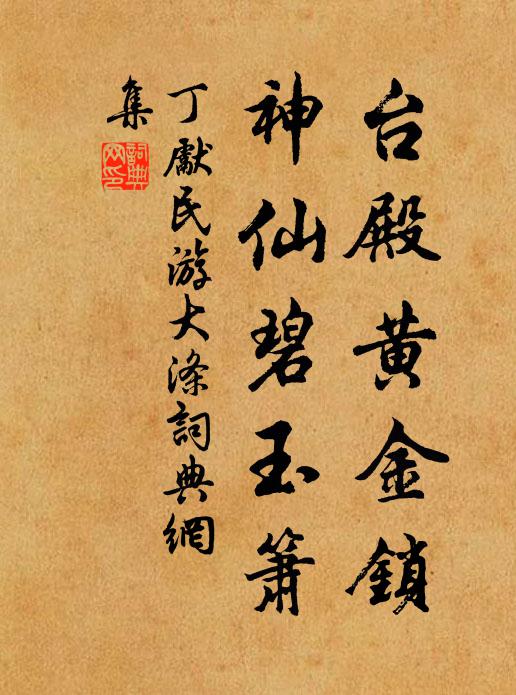 台殿黄金鎖
神仙碧玉簫
丁獻民游大滌詞典網
集
詞典网印